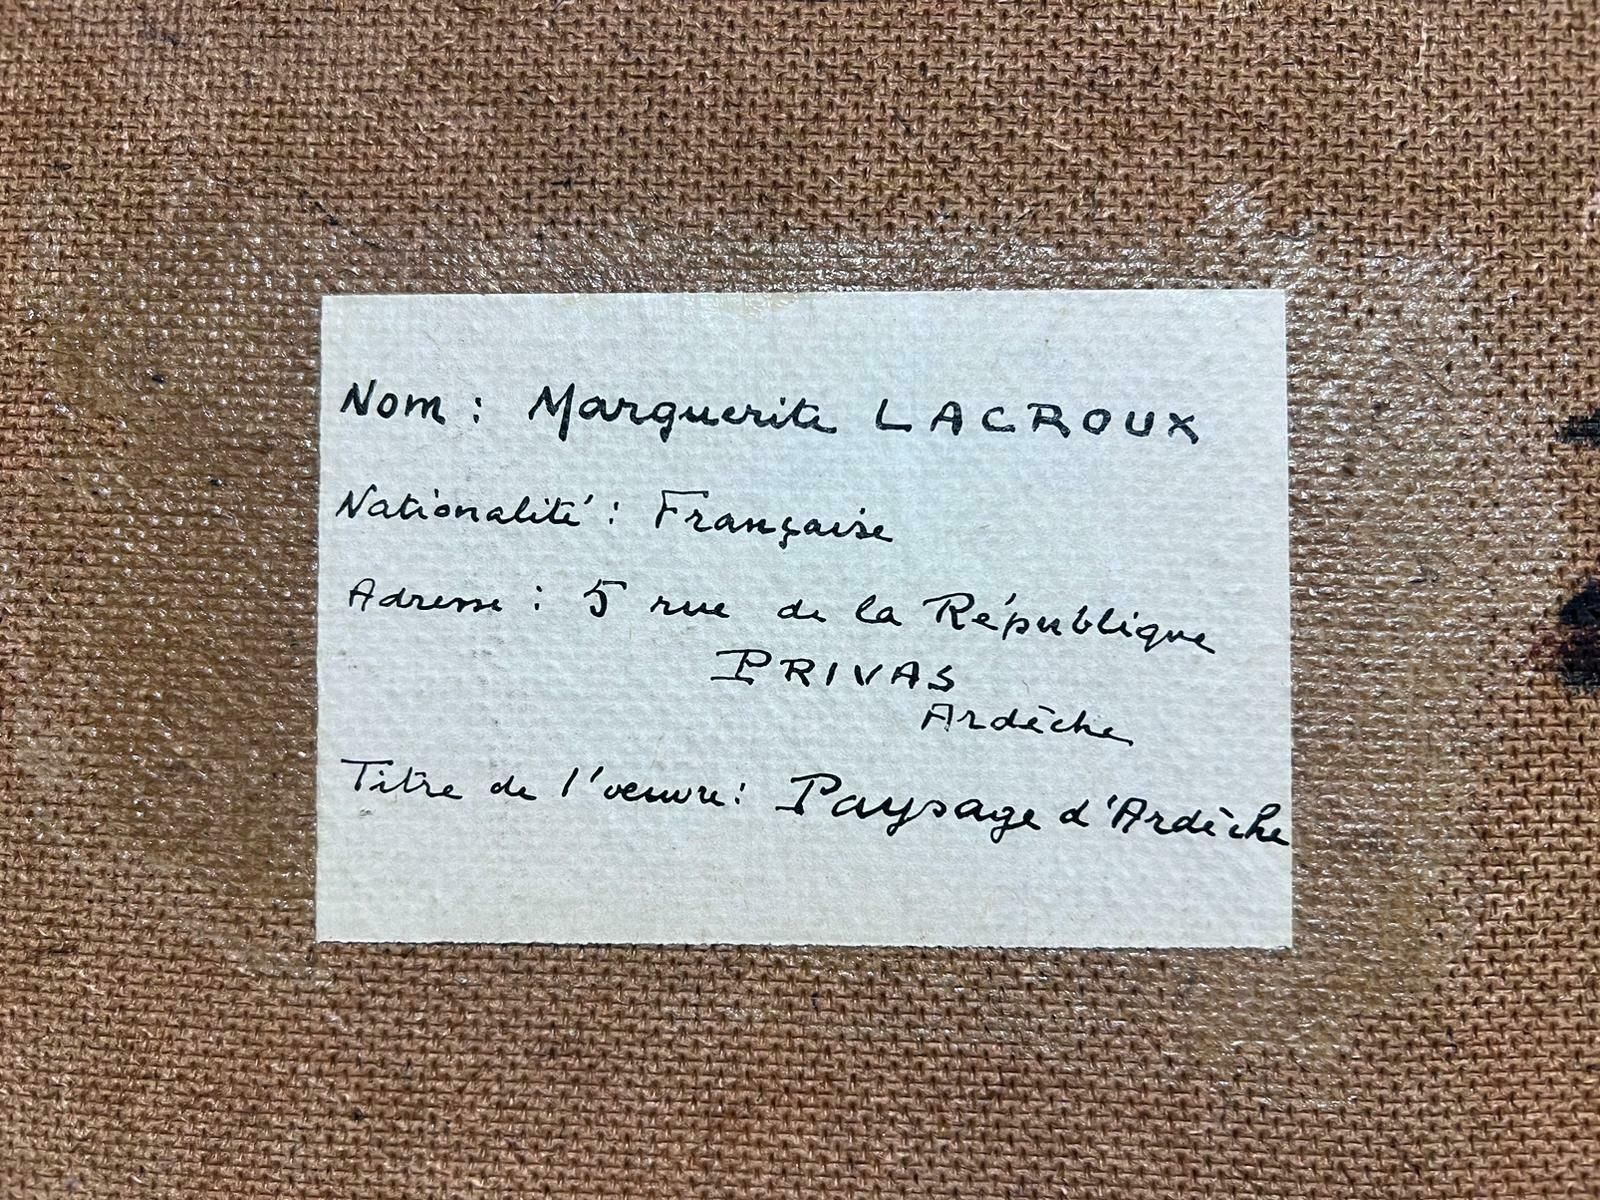 Nom : Marguerite LACROUX
Nationalité : Française
Adresse : 5 rue de la République
PRIVAS
Ardèche
Titre de l'oeuvre : Paysage d'Ardèche